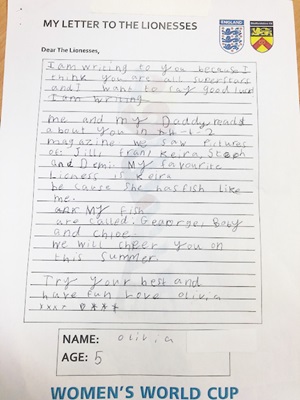 MY LETTER TO THE LIONESSES
ENGLAND
Dear The Lionesses,
I am writing to you because I
think you are all superstars
and I want to say good luck
I am writing
me and my Daddy read
about you in
magazine. we saw pictures
of Jill, Fran, Keira, Steph
and Demi. My favourite
Lioness is Keira
be cause she has fish like
me.
My fish
are called: George, Boby
and Chloe.
we will cheer you on
this summer.
Try your best and
have fun Love Olivia
NAME: Olivia
AGE: 5
WOMEN'S WORLD CUP